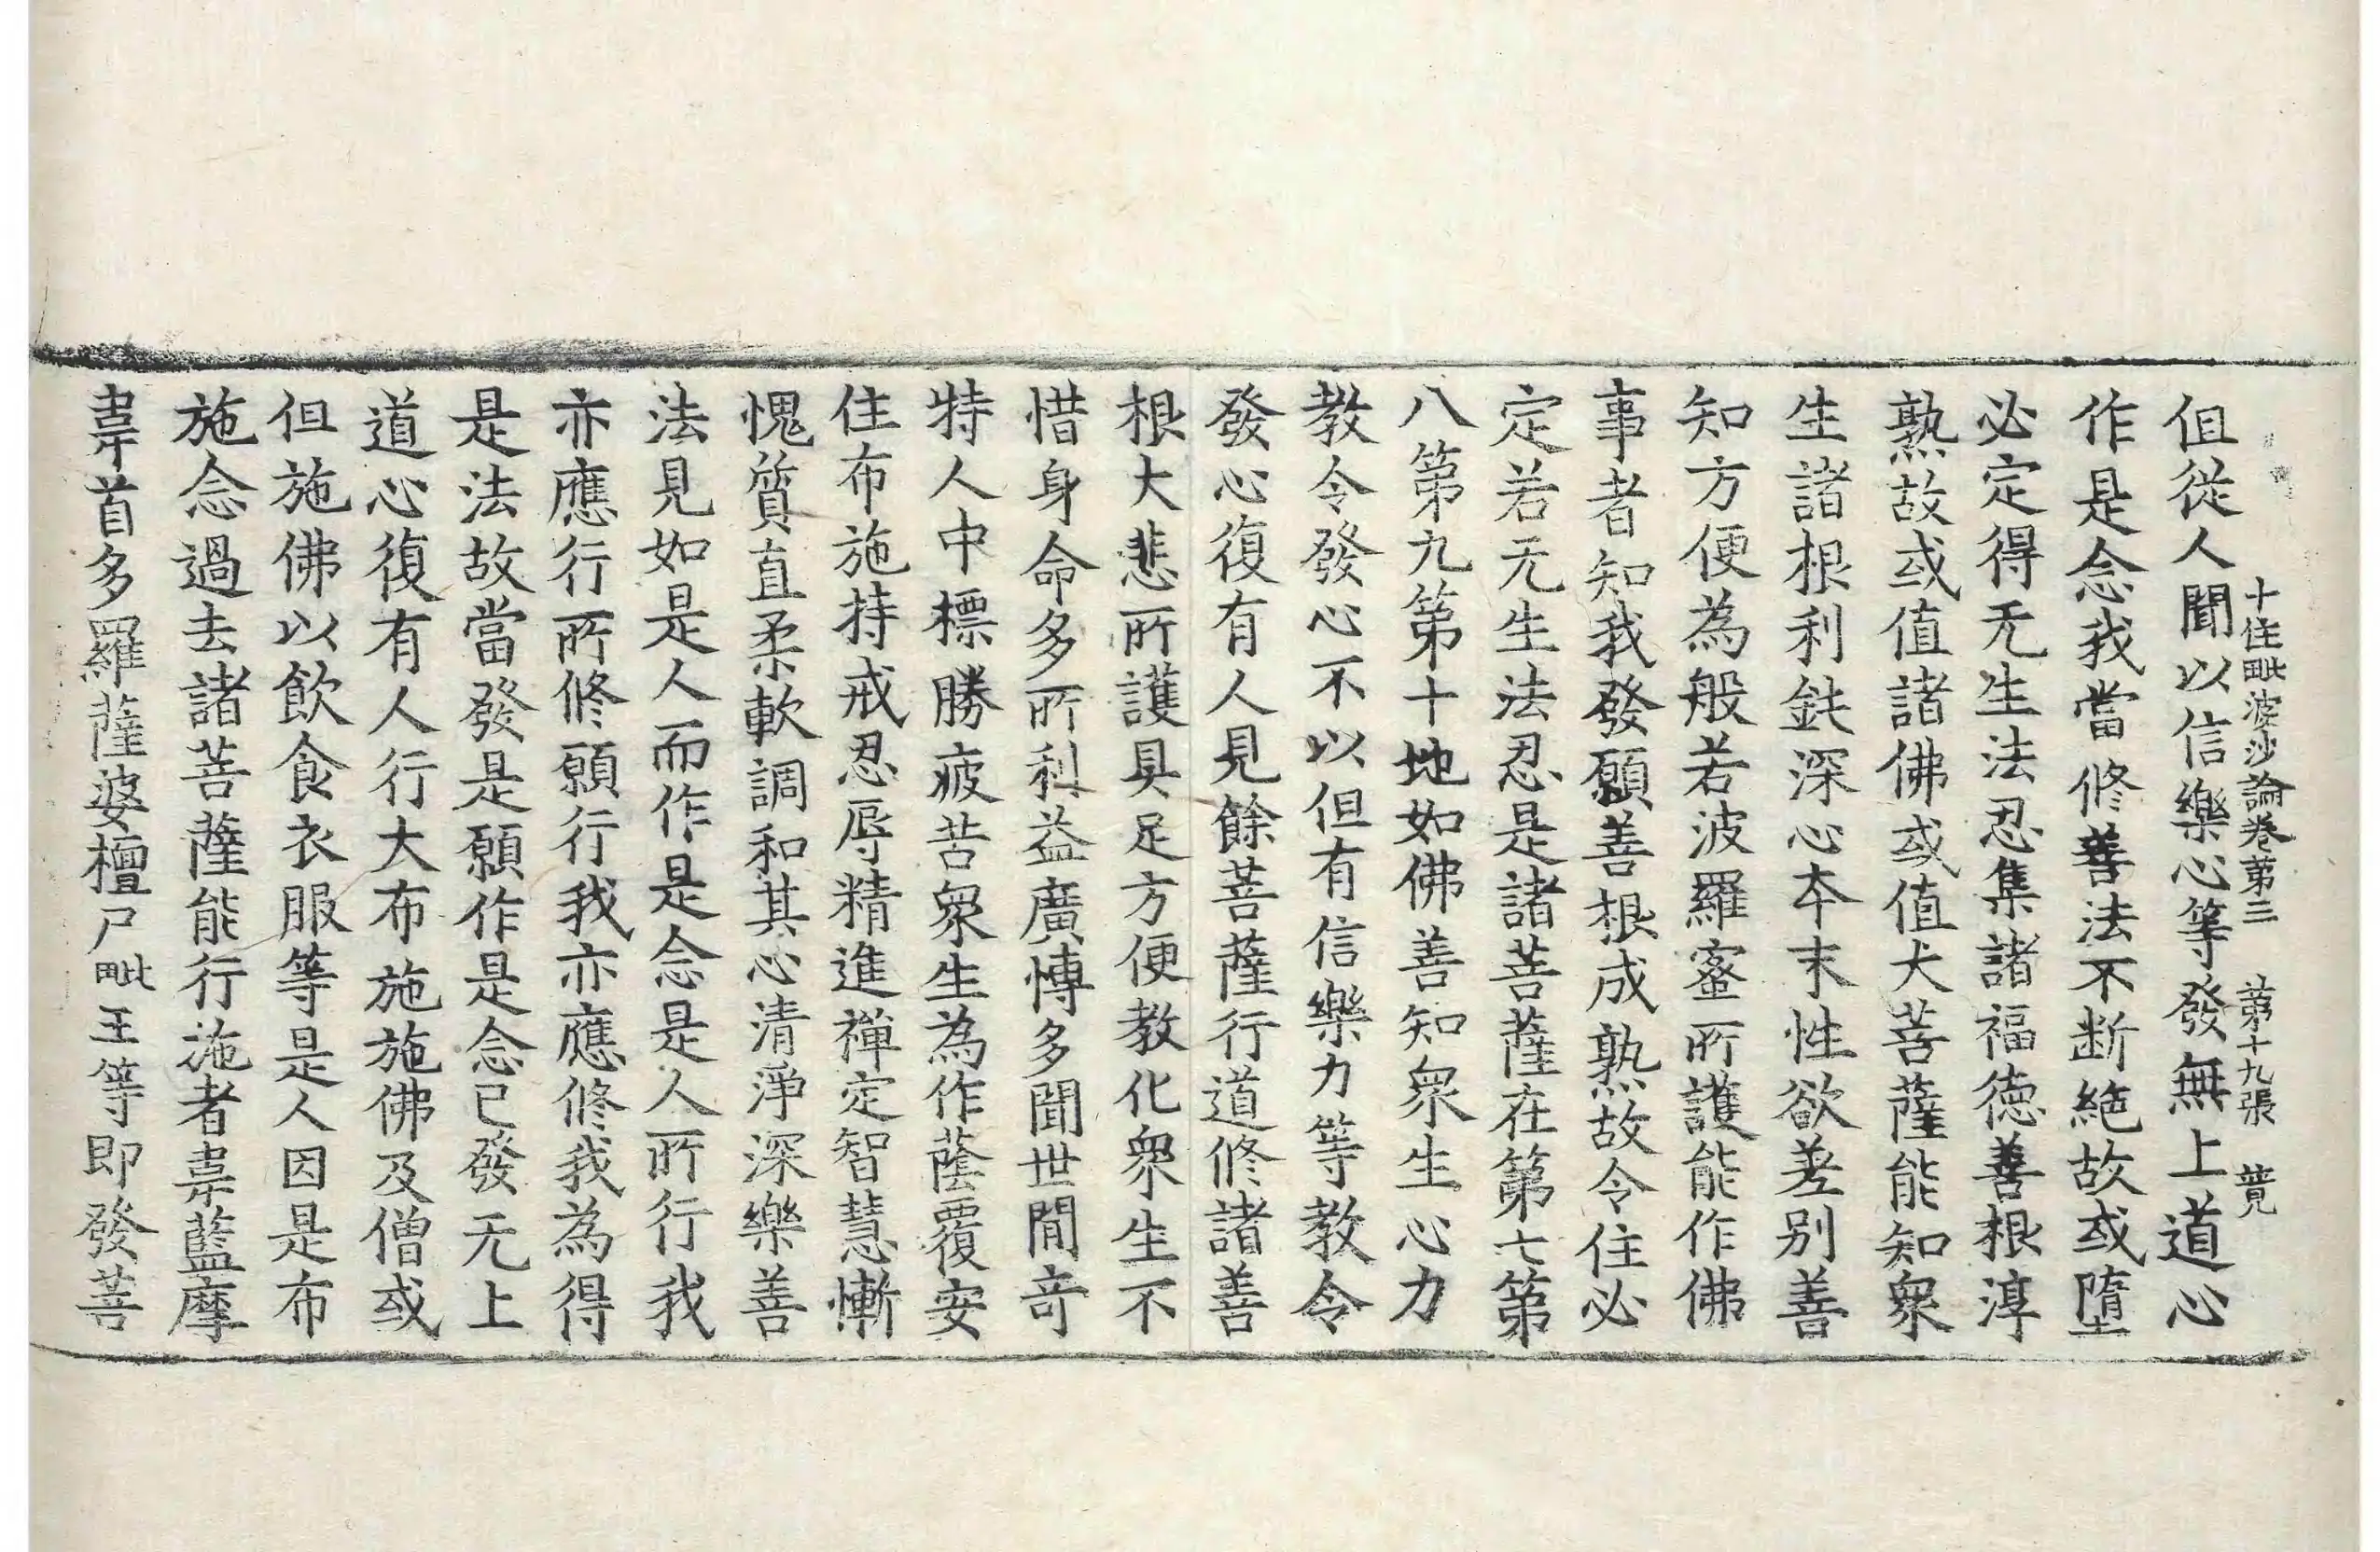 十住毗婆沙論卷第三 第十九張 覺
但從人聞以信樂心等發無上道心
作是念我當修善法不断絶故或墮
必定得无生法忍集諸福德善根淳
熟故或值諸佛或值大菩薩能知衆
生諸根利鈍深心本末性欲差别善
知方便為般若波羅蜜所護能作佛
事者知我發願善根成熟故令住必
定若无生法忍是諸菩薩在第七第
八第九第十地如佛善知衆生心力
教令發心不以但有信樂力等教令
發心復有人見餘菩薩行道修諸善
根大悲所護具足方便教化衆生不
惜身命多所利益廣愽多聞世間竒
特人中標勝疲苦衆生為作蔭覆安
住布施持戒忍辱精進禪定智慧慚
愧質直柔軟調和其心清淨深樂善
法見如是人而作是念是人所行我
亦應行所修願行我亦應修我為得
是法故當發是願作是念已發无上
道心復有人行大布施施佛及僧或
但施佛以飲食衣服等是人因是布
施念過去諸菩薩能行施者韋藍摩
韋首多羅薩婆檀尸毗王等即發菩